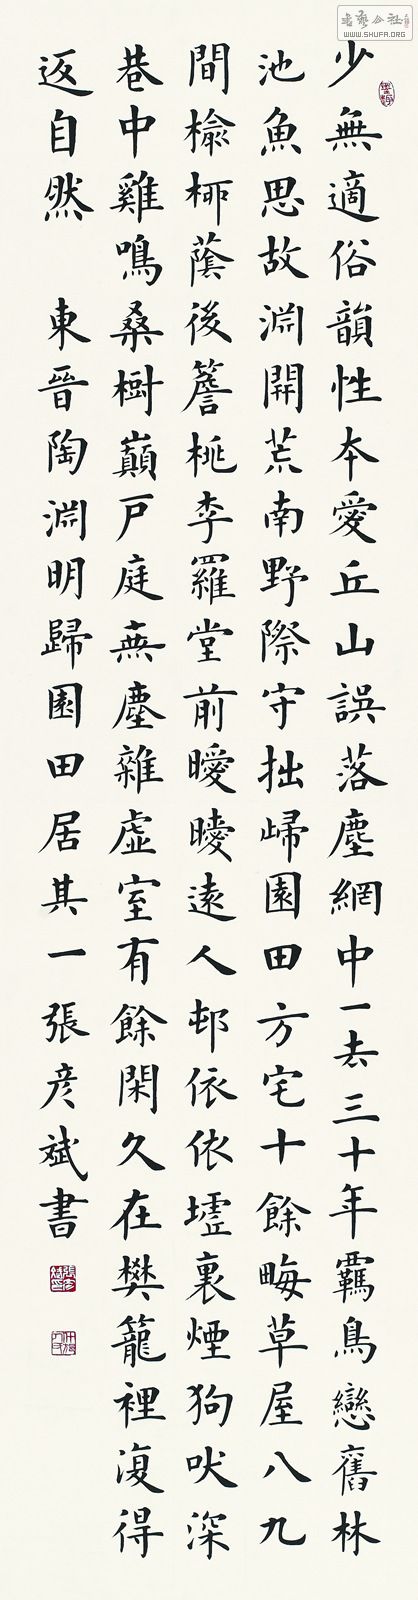 少無適俗韻性本愛丘山誤落塵網中一去三十年羈鳥戀舊林
池魚思故淵開荒南野際守拙歸園田方宅十餘畮草屋八九
間榆栁蔭後簷桃李羅堂前曖曖遠人邨依依墟裏煙狗吠深
巷中雞鳴桑樹巔戶庭無塵雜虛室有餘閑久在樊籠裡復得
返自然 東晉陶淵明歸園田居其一張彥斌書
書藝公社
WWW.SHUFA.ORG